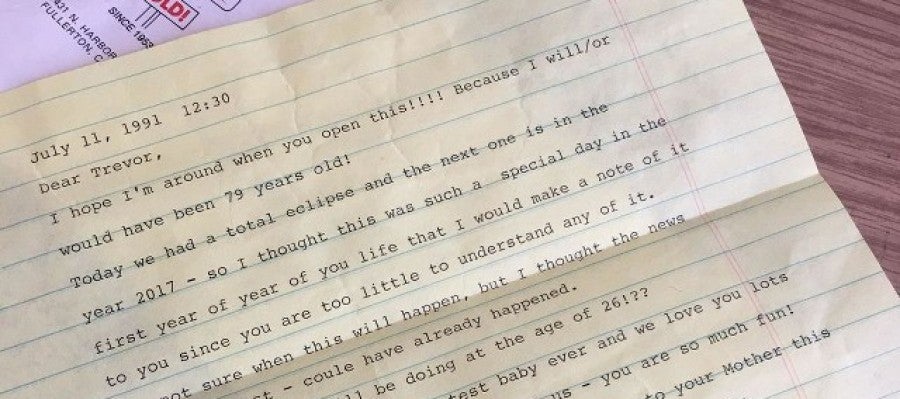 OLD!
SINCE 1953
31 N. HARBOR
FULLERTON, C
July 11, 1991 12:30
Dear Trevor,
I hope I'm around when you open this!!!! Because I will/or
would have been 79 years old!
Today we had a total eclipse and the next one is in the
year 2017 - so I thought this was such a special day in the
first year of year of you life that I would make a note of it
to you since you are too little to understand any of it.
not sure when this will happen, but I thought the news
- coule have already happened.
be doing at the age of 26!??
baby ever and we love you lots
us - you are so much fun!
to your Mother this